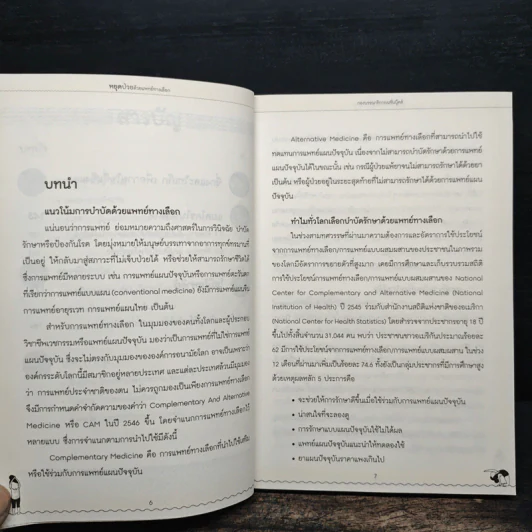 หยุดป่วยด้วยแพทย์ทางเลือก
บทนำ
แนวโน้มการบำบัดด้วยแพทย์ทางเลือก
แน่นอนว่าการแพทย์ ย่อมหมายความถึงศาสตร์ในการวินิจฉัย บำบัด
รักษาหรือป้องกันโรค โดยมุ่งหมายให้มนุษย์บรรเทาจากอาการทุกข์ทรมานที่
เป็นอยู่ ให้กลับมาสู่สภาวะที่ไม่เจ็บป่วยได้ หรือช่วยให้สามารถรักษาชีวิตได้
ซึ่งการแพทย์มีหลายระบบ เช่น การแพทย์แผนปัจจุบันหรือการแพทย์ตะวันตก
ที่เรียกว่าการแพทย์แบบแผน (conventional medicine) ยังมีการแพทย์แผนจีน
การแพทย์อายุรเวท การแพทย์แผนไทย เป็นต้น
สำหรับการแพทย์ทางเลือก ในมุมมองของคนทั่วโลกและผู้ประกอบ
วิชาชีพเวชกรรมหรือแพทย์แผนปัจจุบัน มองว่าเป็นการแพทย์ที่ไม่ใช่การแพทย์
แผนปัจจุบัน ซึ่งจะไม่ตรงกับมุมมองขององค์การอนามัยโลก อาจเป็นเพราะว่า
องค์กรระดับโลกนี้มีสมาชิกอยู่หลายประเทศ และแต่ละประเทศล้วนมีมุมมอง
ว่า การแพทย์ประจำชาติของตน ไม่ควรถูกมองเป็นเพียงการแพทย์ทางเลือก
จึงมีการกำหนดคำจำกัดความของคำว่า Complementary And Alternative
Medicine หรือ CAM ในปี 2546 ขึ้น โดยจำแนกการแพทย์ทางเลือกไว้
หลายแบบ ซึ่งการจำแนกตามการนำไปใช้มีดังนี้
Complementary Medicine คือ การแพทย์ทางเลือกที่นำไปใช้เสริม
หรือใช้ร่วมกับการแพทย์แผนปัจจุบัน
6
Alternative Medicine คือ การแพทย์ทางเลือกที่สามารถนำไปใช้
ทดแทนการแพทย์แผนปัจจุบัน เนื่องจากไม่สามารถบำบัดรักษาด้วยการแพทย์
แผนปัจจุบันได้ในขณะนั้น เช่น กรณีผู้ป่วยแพ้ยาจนไม่สามารถรักษาได้ด้วยยา
เป็นต้น หรือผู้ป่วยอยู่ในระยะสุดท้ายที่ไม่สามารถรักษาได้ด้วยการแพทย์แผน
ปัจจุบัน
ทำไมทั่วโลกเลือกบำบัดรักษาด้วยแพทย์ทางเลือก
ในช่วงสามทศวรรษที่ผ่านมาความต้องการและอัตราการใช้ประโยชน์
จากการแพทย์ทางเลือก/การแพทย์แบบผสมผสานของประชาชนในภาพรวม
ของโลกมีอัตราการขยายตัวที่สูงมาก เคยมีการศึกษาและเก็บรวบรวมสถิติ
การใช้ประโยชน์การแพทย์ทางเลือก/การแพทย์แบบผสมผสานของ National
Center for Complementary and Alternative Medicine (National
Institution of Health) ปี 2545 ร่วมกับสำนักงานสถิติแห่งชาติของอเมริกา
(National Center for Health Statistics) โดยสำรวจจากประชากรอายุ 18 ปี
ขึ้นไปทั้งสิ้นจำนวน 31,044 คน พบว่า ประชาชนชาวอเมริกันประมาณร้อยละ
62 มีการใช้ประโยชน์จากการแพทย์ทางเลือก/การแพทย์แบบผสมผสาน ในช่วง
12 เดือนที่ผ่านมาเพิ่มเป็นร้อยละ 74.6 ทั้งยังเป็นกลุ่มประชากรที่มีการศึกษาสูง
ด้วยเหตุผลหลัก 5 ประการคือ
• จะช่วยให้การรักษาดีขึ้นเมื่อใช้ร่วมกับการแพทย์แผนปัจจุบัน
• น่าสนใจที่จะลองดู
• การรักษาแบบแผนปัจจุบันใช้ไม่ได้ผล
• แพทย์แผนปัจจุบันแนะนำให้ทดลองใช้
• ยาแผนปัจจุบันราคาแพงเกินไป
7